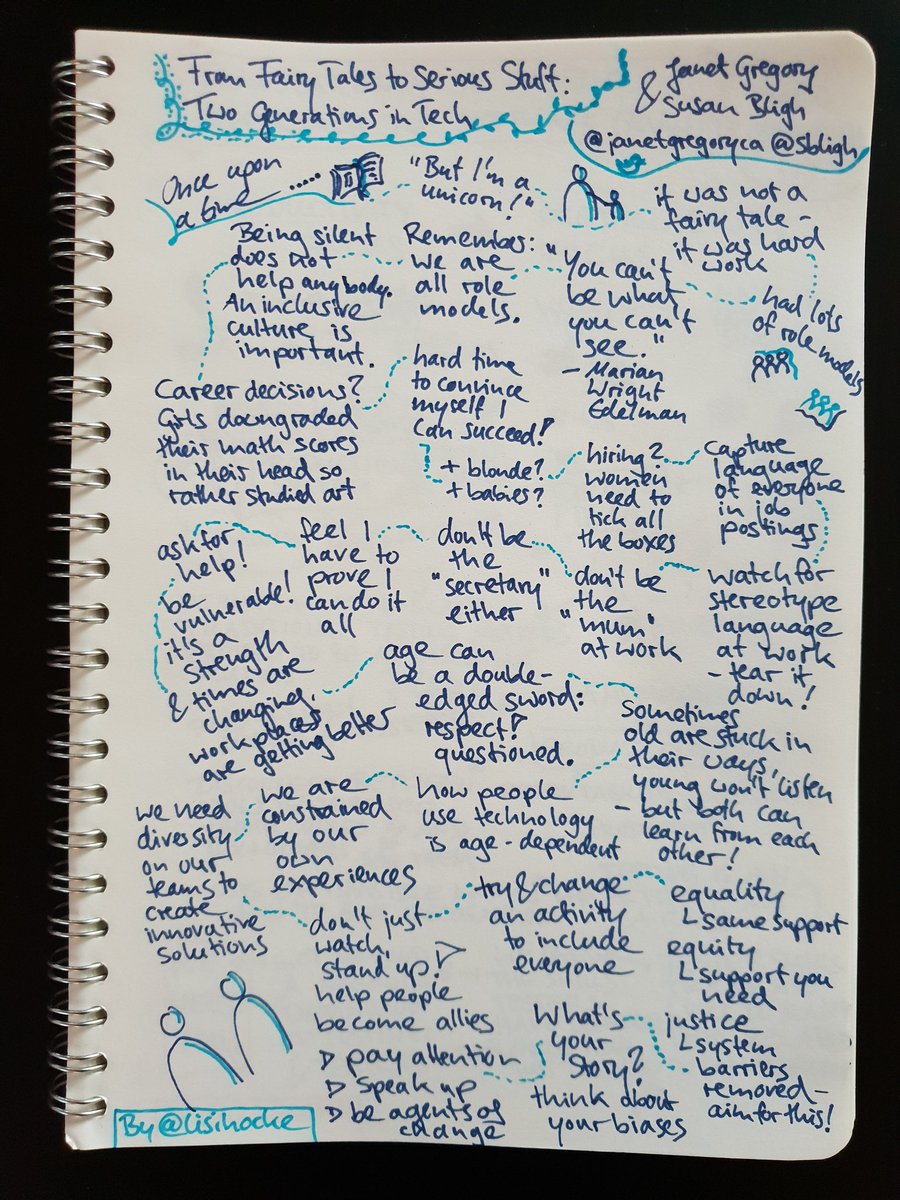 From Fairy Tales to Serious Stuff:
Two Generations in Tech
Janet Gregory
& Susan Bligh
@janetgregoryca @Sbligh
Once upon
a time .....
"But I'm a
unicorn!"
it was not a
fairy tale -
it was hard
work
had lots
of role models
"You can't
be what
you can't
see."
- Marian
Wright
Edelman
Remember:
we are
all role
models.
Being silent
does not
help anybody.
An inclusive
culture is
important.
Career decisions?
Girls downgraded
their math scores
in their head so
rather studied art
hard time
to convince
myself I
can succeed!
+ blonde?
+ babies?
hiring?
women
need to
tick all
the boxes
capture
language
of everyone
in job
postings
watch for
stereotype
language
at work
- tear it
down!
don't be
the
"mum"
at work
don't be
the
"secretary"
either
feel I
have to
prove I
can do it
all
ask for
help!
be
vulnerable!
it's a
strength
& times are
changing,
workplaces
are getting better
age can
be a double-
edged sword:
respect?
questioned.
Sometimes
old are stuck in
their ways,
young won't listen
- but both can
learn from each
other!
how people
use technology
is age-dependent
we are
constrained
by our
own
experiences
we need
diversity
on our
teams to
create
innovative
solutions
don't just
watch,
stand up!
help people
become allies
▷ pay attention
▷ speak up
▷ be agents of
change
try & change
an activity
to include
everyone
equality
↳ same support
equity
↳ support you
need
justice
↳ system
barriers
removed -
aim for this!
What's
your
story?
think about
your biases
By @lisihocke